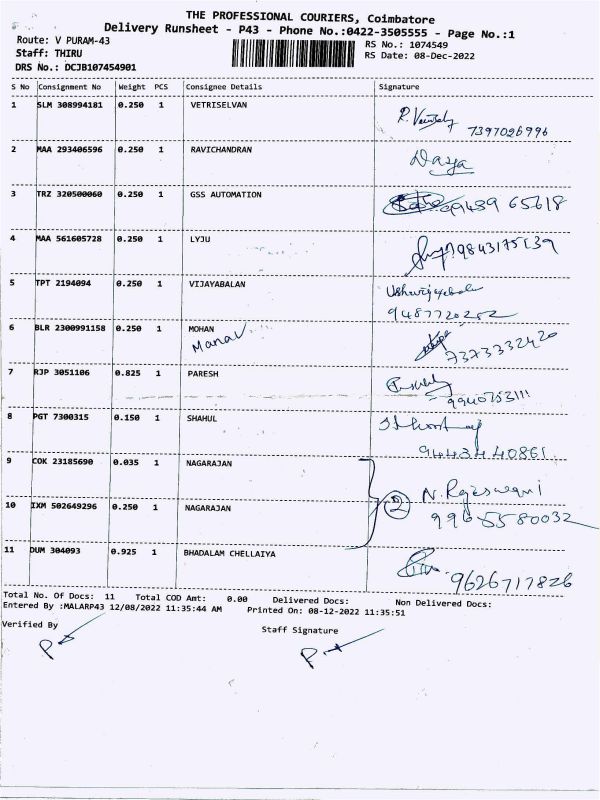 THE PROFESSIONAL COURIERS, Coimbatore
Delivery Runsheet - P43 - Phone No.:0422-3505555 - Page No.:1
Route: V PURAM-43
RS No.: 1074549
Staff: THIRU
RS Date: 08-Dec-2022
DRS No.: DCJB107454901
S No Consignment No Weight PCS Consignee Details Signature
1 SLM 308994181 0.250 1 VETRISELVAN
7397026996
2 MAA 293406596 0.250 1 RAVICHANDRAN Daya
3 TRZ 320500060 0.250 1 GSS AUTOMATION 9439 65618
4 MAA 561605728 0.250 1 LYJU
5 TPT 2194094 0.250 1 VIJAYABALAN
9487720252
6 BLR 2300991158 0.250 1 MOHAN
Manav
7373332420
7 RJP 3051106 0.825 1 PARESH
9940753111
8 PGT 7300315 0.150 1 SHAHUL
9443440861
9 COK 23185690 0.035 1 NAGARAJAN
2 N. Rajeswari
10 IXM 502649296 0.250 1 NAGARAJAN
9965580032
11 DUM 304093 0.925 1 BHADALAM CHELLAIYA
9626717826
Total No. Of Docs: 11 Total COD Amt: 0.00 Delivered Docs: Non Delivered Docs:
Entered By :MALARP43 12/08/2022 11:35:44 AM Printed On: 08-12-2022 11:35:51
Verified By
Staff Signature